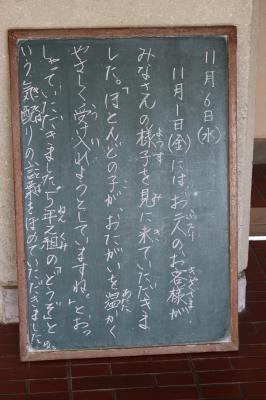 11月6日(水)
11月1日(金)には、お二人のお客様が
みなさんの様子を見に来ていただきま
した。「ほとんどの子が、おたがいを温かく
やさしく受け入れようとしていますね。」とおっ
しゃっていただきました。5年2組の「どうぞ」と
いう気配りの言葉をほめていただきました。